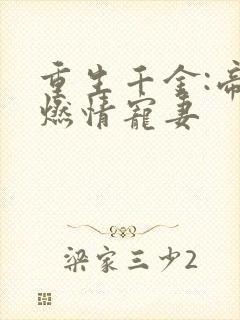 重生千金:帝
燃情宠妻
梁家三少2